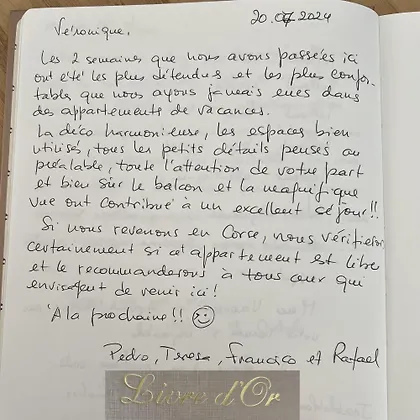 20.07 2024
Véronique,
Les 2 semaines que nous avons passées ici
ont été les plus détendues et les plus confor-
table que nous ayons jamais eues dans
des appartements de vacances.
La déco harmonieuse, les espaces bien
utilisés, tous les petits détails pensés au
préalable, toute l'attention de votre part
et bien sûr le balcon et la magnifique
vue ont contribué à un excellent séjour!!
Si nous revenons en Corse, nous vérifieron
certainement si cet appartement est libre
et le recommanderons à tous ceux qui
envisagent de venir ici!
'A la prochaine!! ☺
Pedro, Teresa, Francisco et Rafael
Livre d'Or